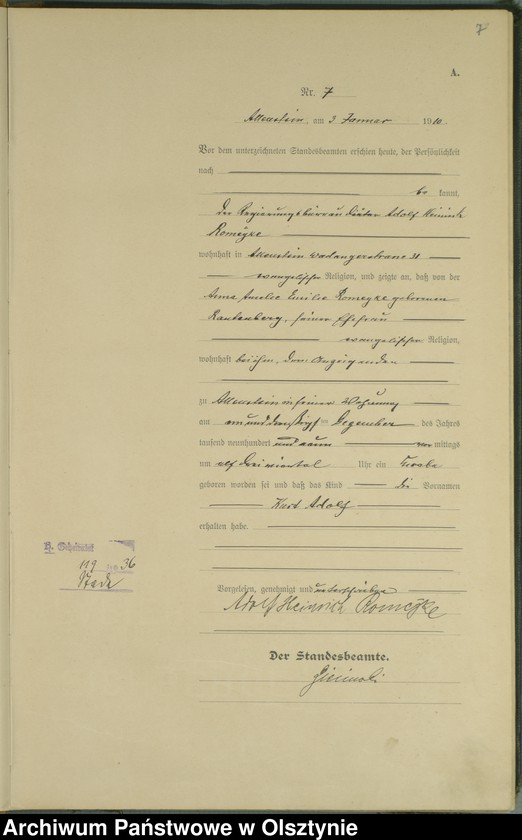 7
A.
Nr. 7
Allenstein, am 3 Januar 1910
Vor dem unterzeichneten Standesbeamten erschien heute, der Persönlichkeit
nach
be kannt,
der Regierungsbureau Diätar Adolf Heinrich
Romeyke
wohnhaft in Allenstein
evangelischer Religion, und zeigte an, daß von der
Anna Amelie Emilie Romeyke geborenen
Rautenberg, seiner Ehefrau
evangelischer Religion,
wohnhaft bei ihm, dem Anzeigenden
zu Allenstein in seiner Wohnung
am ein und dreißigsten Dezember des Jahres
tausend neunhundert und neun vor mittags
um elf dreiviertel Uhr ein Knabe
geboren worden sei und daß das Kind die Vornamen
Kurt Adolf
erhalten habe.
119 36
Stade
Vorgelesen, genehmigt und unterschrieben
Adolf Heinrich Romeyke
Der Standesbeamte.
Archiwum Państwowe w Olsztynie